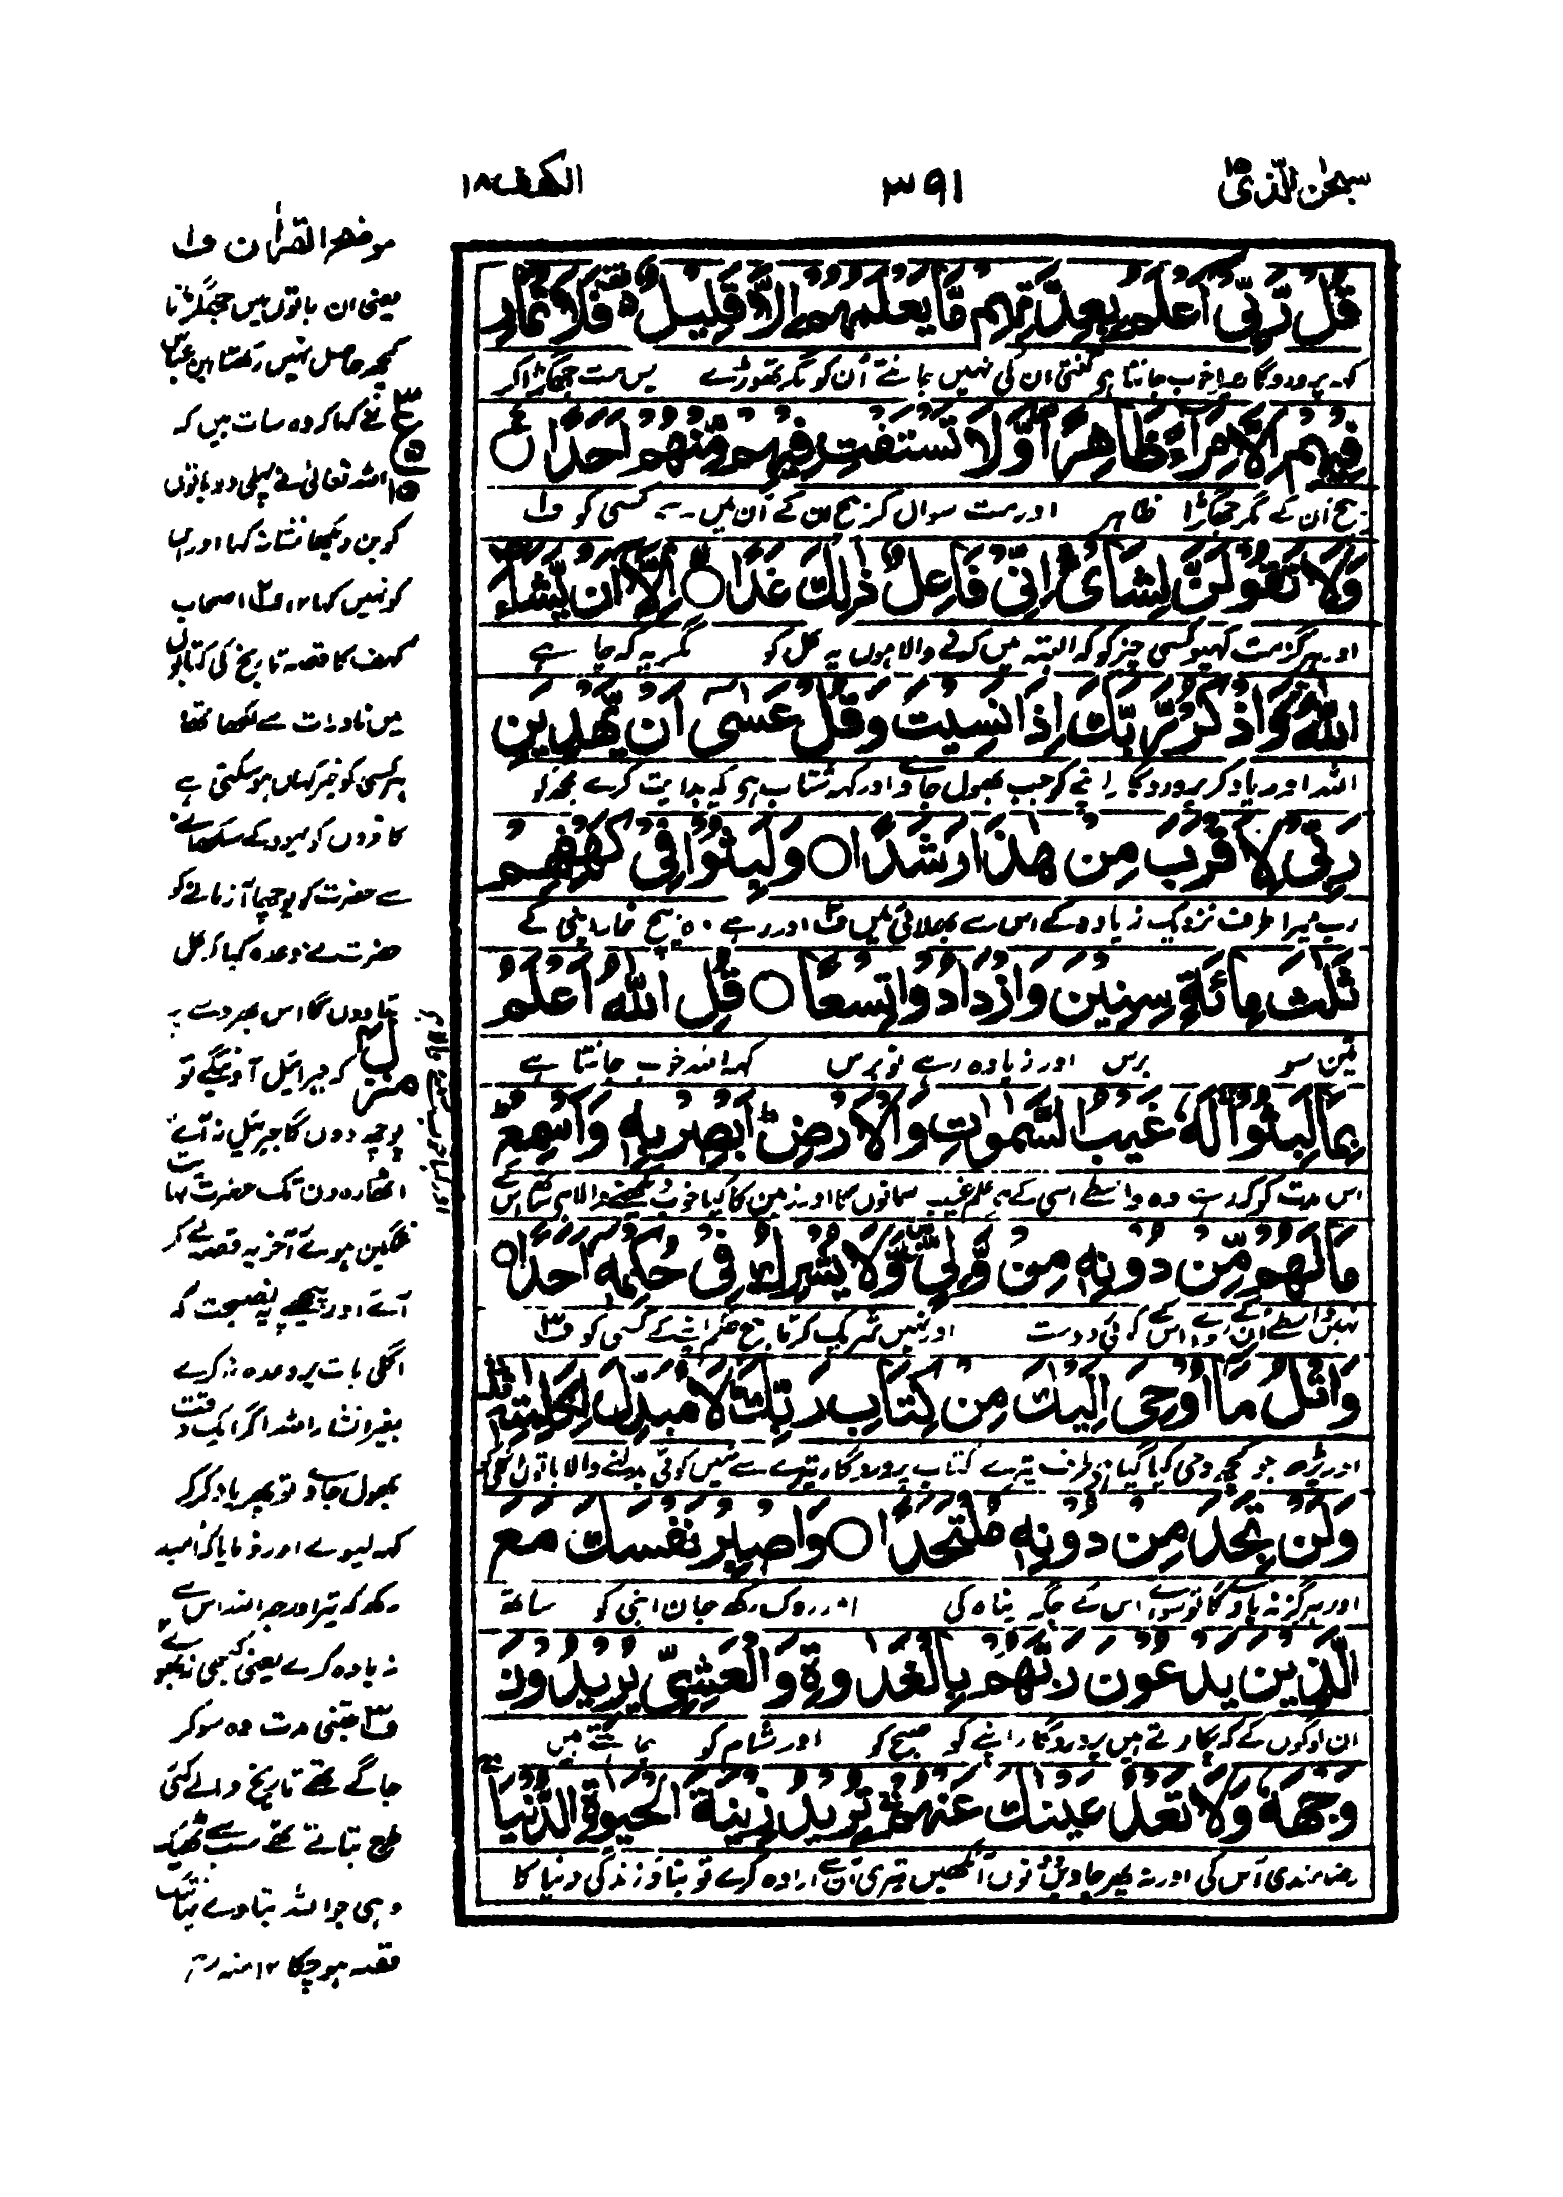 سبحن الذی ۱۵
۳۹۱
الکهف ۱۸
قُلْ رَّبِّیْ اَعْلَمُ بِعِدَّتِهِمْ مَّا یَعْلَمُهُمْ اِلَّا قَلِیْلٌ فَلَا تُمَارِ
کہہ پروردگار میرا خوب جانتا ہی گنتی ان کی نہیں جانتے اُن کو مگر تھوڑے پس مت جھگڑا کر
فِیْهِمْ اِلَّا مِرَآءً ظَاهِرًا وَّلَا تَسْتَفْتِ فِیْهِمْ مِّنْهُمْ اَحَدًا ۝
بیچ اُن کے مگر جھگڑا ظاہر اور مت سوال کر بیچ ان کے اُن میں سے کسی کو ف۱
وَلَا تَقُوْلَنَّ لِشَایْءٍ اِنِّیْ فَاعِلٌ ذٰلِكَ غَدًا ۝ اِلَّا اَنْ یَّشَآءَ
اور ہرگز مت کہیو کسی چیز کو کہ البتہ میں کرنے والا ہوں یہ کل کو مگر یہ کہ چا ہے
اللّٰهُ وَاذْكُرْ رَّبَّكَ اِذَا نَسِیْتَ وَقُلْ عَسٰٓی اَنْ یَّهْدِیَنِ
اللہ اور یاد کر پروردگار اپنے کو جب بھول جاوے اور کہہ شتاب ہی کہ ہدایت کرے مجھ کو
رَبِّیْ لِاَقْرَبَ مِنْ هٰذَا رَشَدًا ۝ وَلَبِثُوْا فِیْ كَهْفِهِمْ
رب میرا طرف نزدیک زیادہ کے اس سے بھلائی میں ف۲ اور رہے وہ بیچ غار اپنی کے
ثَلٰثَ مِائَةٍ سِنِیْنَ وَازْدَادُوْا تِسْعًا ۝ قُلِ اللّٰهُ اَعْلَمُ
تین سو برس اور زیادہ رہے نو برس کہہ اللہ خوب جانتا ہے
بِمَا لَبِثُوْا لَهٗ غَیْبُ السَّمٰوٰتِ وَالْاَرْضِ اَبْصِرْ بِهٖ وَاَسْمِعْ
اس مدت کو کہ رہے وہ واسطے اسی کے ہی علم غیب آسمانوں کا اور زمین کا کیا خوب دیکھنے والا ہی
مَا لَهُمْ مِّنْ دُوْنِهٖ مِنْ وَّلِیٍّ وَّلَا یُشْرِكُ فِیْ حُكْمِهٖٓ اَحَدًا ۝
نہیں واسطے ان کے سوائے اس کے کوئی دوست اور نہیں شریک کرتا بیچ حکم اپنے کے کسی کو ف۳
وَاتْلُ مَآ اُوْحِیَ اِلَیْكَ مِنْ كِتَابِ رَبِّكَ لَا مُبَدِّلَ لِكَلِمٰتِهٖ
اور پڑھ جو کچھ وحی کیا گیا ہی طرف تیرے کتاب پروردگار تیرے سے نہیں کوئی بدلنے والا باتوں اسکی کو
وَلَنْ تَجِدَ مِنْ دُوْنِهٖ مُلْتَحَدًا ۝ وَاصْبِرْ نَفْسَكَ مَعَ
اور ہرگز نہ پاویگا تو سوائے اس کے جگہ پناہ کی اور روک رکھ جان اپنی کو ساتھ
الَّذِیْنَ یَدْعُوْنَ رَبَّهُمْ بِالْغَدٰوةِ وَالْعَشِیِّ یُرِیْدُوْنَ
ان لوگوں کے کہ پکارتے ہیں پروردگار اپنے کو صبح کو اور شام کو چاہتے ہیں
وَجْهَهٗ وَلَا تَعْدُ عَیْنٰكَ عَنْهُمْ تُرِیْدُ زِیْنَةَ الْحَیٰوةِ الدُّنْیَا
رضامندی اُس کی اور نہ پھر جاویں دونوں آنکھیں تیری اُن سے ارادہ کرے تو بناؤ زندگی دنیا کا
موضح القرآن ف۱
یعنی ان باتوں میں جھگڑنا
کچھ حاصل نہیں رکھتا ابن عباس
نے کہا کہ وہ سات ہیں کہ
اللہ تعالیٰ نے پہلی دو باتوں
کو بن دیکھا نشانہ کہا اور اس
کو نہیں کہا ۱۲ ف۲ اصحاب
کہف کا قصہ تاریخ کی کتابوں
میں نادرات سے لکھا تھا
ہر کسی کو خبر کہاں ہو سکتی ہے
کافروں کو یہود کے سکھانے
سے حضرت کو پوچھا آزمانے کو
حضرت نے وعدہ کیا کہ کل
بتا دوں گا اس بھروسے پر
کہ جبرائیل آویں گے تو
پوچھ دوں گا جبرئیل نہ آئے
اٹھارہ دن تک حضرت نہایت
غمگین ہوئے آخر یہ قصہ لے کر
آئے اور پیچھے یہ نصیحت کہ
اگلی بات پر وعدہ نہ کرے
بغیر انشاء اللہ اگر ایک وقت
بھول جاوے تو پھر یاد کر کر
کہہ لیوے اور فرمایا کہ امید
رکھ کہ تیرا درجہ اللہ اس سے
زیادہ کرے یعنی کبھی نہ بھولے
ف۳ جتنی مدت وہ سو کر
جاگے تھے تاریخ والے کئی
طرح بتاتے تھے سب سے ٹھیک
وہی جو اللہ بتاوے یہاں تک
قصہ ہو چکا ۱۲ منہ رح